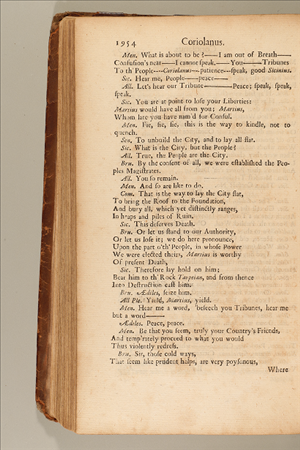 1954 Coriolanus.
Men. What is about to be?——I am out of Breath——
Confusion's near——I cannot speak.——You———Tribunes
To th' People----Coriolanus--patience--speak, good Sicinius.
Sic. Hear me, People——peace——
All. Let's hear our Tribune————Peace; speak, speak,
speak.
Sic. You are at point to lose your Liberties:
Martius would have all from you; Martius,
Whom late you have nam'd for Consul.
Men. Fie, fie, fie, this is the way to kindle, not to
quench.
Sen. To unbuild the City, and to lay all flat.
Sic. What is the City, but the People?
All. True, the People are the City.
Bru. By the consent of all, we were establish'd the Peo-
ples Magistrates.
All. You so remain.
Men. And so are like to do.
Com. That is the way to lay the City flat,
To bring the Roof to the Foundation,
And bury all, which yet distinctly ranges,
In heaps and piles of Ruin.
Sic. This deserves Death.
Bru. Or let us stand to our Authority,
Or let us lose it; we do here pronounce,
Upon the part o'th' People, in whose Power
We were elected theirs, Martius is worthy
Of present Death.
Sic. Therefore lay hold on him;
Bear him to th' Rock Tarpeian, and from thence
Into Destruction cast him.
Bru. Ædiles, seize him.
All Ple. Yield, Martius, yield.
Men. Hear me a word, beseech you Tribunes, hear me
but a word———
Ædiles. Peace, peace.
Men. Be that you seem, truly your Country's Friends,
And temp'rately proceed to what you would
Thus violently redress.
Bru. Sir, those cold ways,
That seem like prudent helps, are very poysonous,
Where